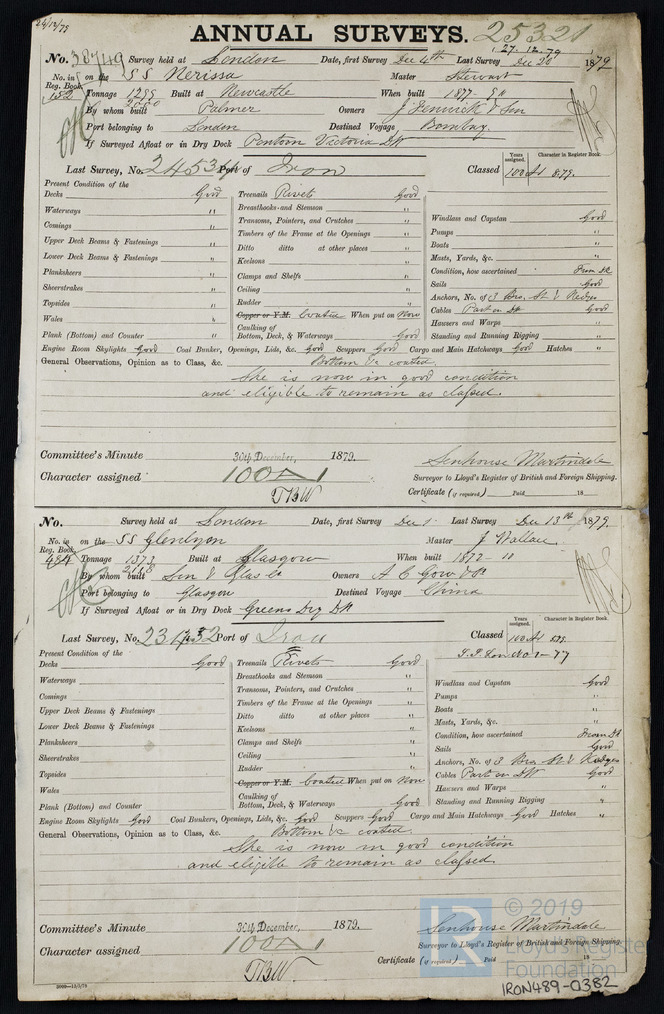 24/12/79
ANNUAL SURVEYS. 25321
27.12.79
No. 38749 Survey held at London Date, first Survey Dec 4th Last Survey Dec 20 1879
No. in Reg. Book 152 on the SS Nerissa Master Stewart
Tonnage 1295 Built at Newcastle When built 1877-
By whom built Palmer Owners J Fenwick & Son
Port belonging to London Destined Voyage Bombay.
If Surveyed Afloat or in Dry Dock Pontoon Victoria Dk
Last Survey, No. Port of Iron Classed
Years assigned. Character in Register Book.
100 A1 8.79.
Present Condition of the
Decks Good Treenails Rivets Good
Waterways " Breasthooks and Stemson "
Comings " Transoms, Pointers, and Crutches " Windlass and Capstan Good
Upper Deck Beams & Fastenings " Timbers of the Frame at the Openings " Pumps "
Lower Deck Beams & Fastenings " Ditto ditto at other places " Boats "
Planksheers " Keelsons " Masts, Yards, &c. "
Sheerstrakes " Clamps and Shelfs " Condition, how ascertained From Dk
Topsides " Ceiling " Sails Good
Wales " Rudder " Anchors, No. of 3 Brs. St & Kedges
Copper or Y.M. Coated When put on Now Cables Part on Dk Good
Plank (Bottom) and Counter " Caulking of Bottom, Deck, & Waterways Good Hawsers and Warps "
Standing and Running Rigging "
Engine Room Skylights Good Coal Bunker, Openings, Lids, &c. Good Scuppers Good Cargo and Main Hatchways Good Hatches "
General Observations, Opinion as to Class, &c. Bottom &c coated.
She is now in good condition
and eligible to remain as classed.
Committee's Minute 30th December, 1879. Senhouse Martindale
Character assigned 100A1 Surveyor to Lloyd's Register of British and Foreign Shipping.
TBW Certificate (if required) Paid 18
No. Survey held at London Date, first Survey Dec 1 Last Survey Dec 13th 1879.
No. in Reg. Book 484 on the SS Glenlyon Master J Wallace
Tonnage 1373 Built at Glasgow When built 1872-10
2118
By whom built Owners A C Gow & Co
Port belonging to Glasgow Destined Voyage China
If Surveyed Afloat or in Dry Dock Greens Dry Dk
Last Survey, No. Port of Iron Classed
Years assigned. Character in Register Book.
100 A1 8.79.
Present Condition of the
Decks Good Treenails Rivets Good
Waterways Breasthooks and Stemson " Windlass and Capstan Good
Comings Transoms, Pointers, and Crutches " Pumps "
Upper Deck Beams & Fastenings Timbers of the Frame at the Openings " Boats "
Lower Deck Beams & Fastenings Ditto ditto at other places " Masts, Yards, &c. "
Planksheers Keelsons " Condition, how ascertained From Dk
Sheerstrakes Clamps and Shelfs " Sails Good
Topsides Ceiling " Anchors, No. of 3 Brs St & Kedges
Wales Rudder " Cables Part on Dk Good
Copper or Y.M. Coated When put on Now Hawsers and Warps "
Plank (Bottom) and Counter Caulking of Bottom, Deck, & Waterways Good Standing and Running Rigging "
Engine Room Skylights Good Coal Bunkers, Openings, Lids, &c. Good Scuppers Good Cargo and Main Hatchways Good Hatches "
General Observations, Opinion as to Class, &c. Bottom &c coated.
She is now in good condition
and eligible to remain as classed.
Committee's Minute 30th December, 1879. Senhouse Martindale
Character assigned 100A1 Surveyor to Lloyd's Register of British and Foreign Shipping.
TBW Certificate (if required) Paid 18
© 2019
LR
Lloyd's Register
Foundation
IRON489-0382